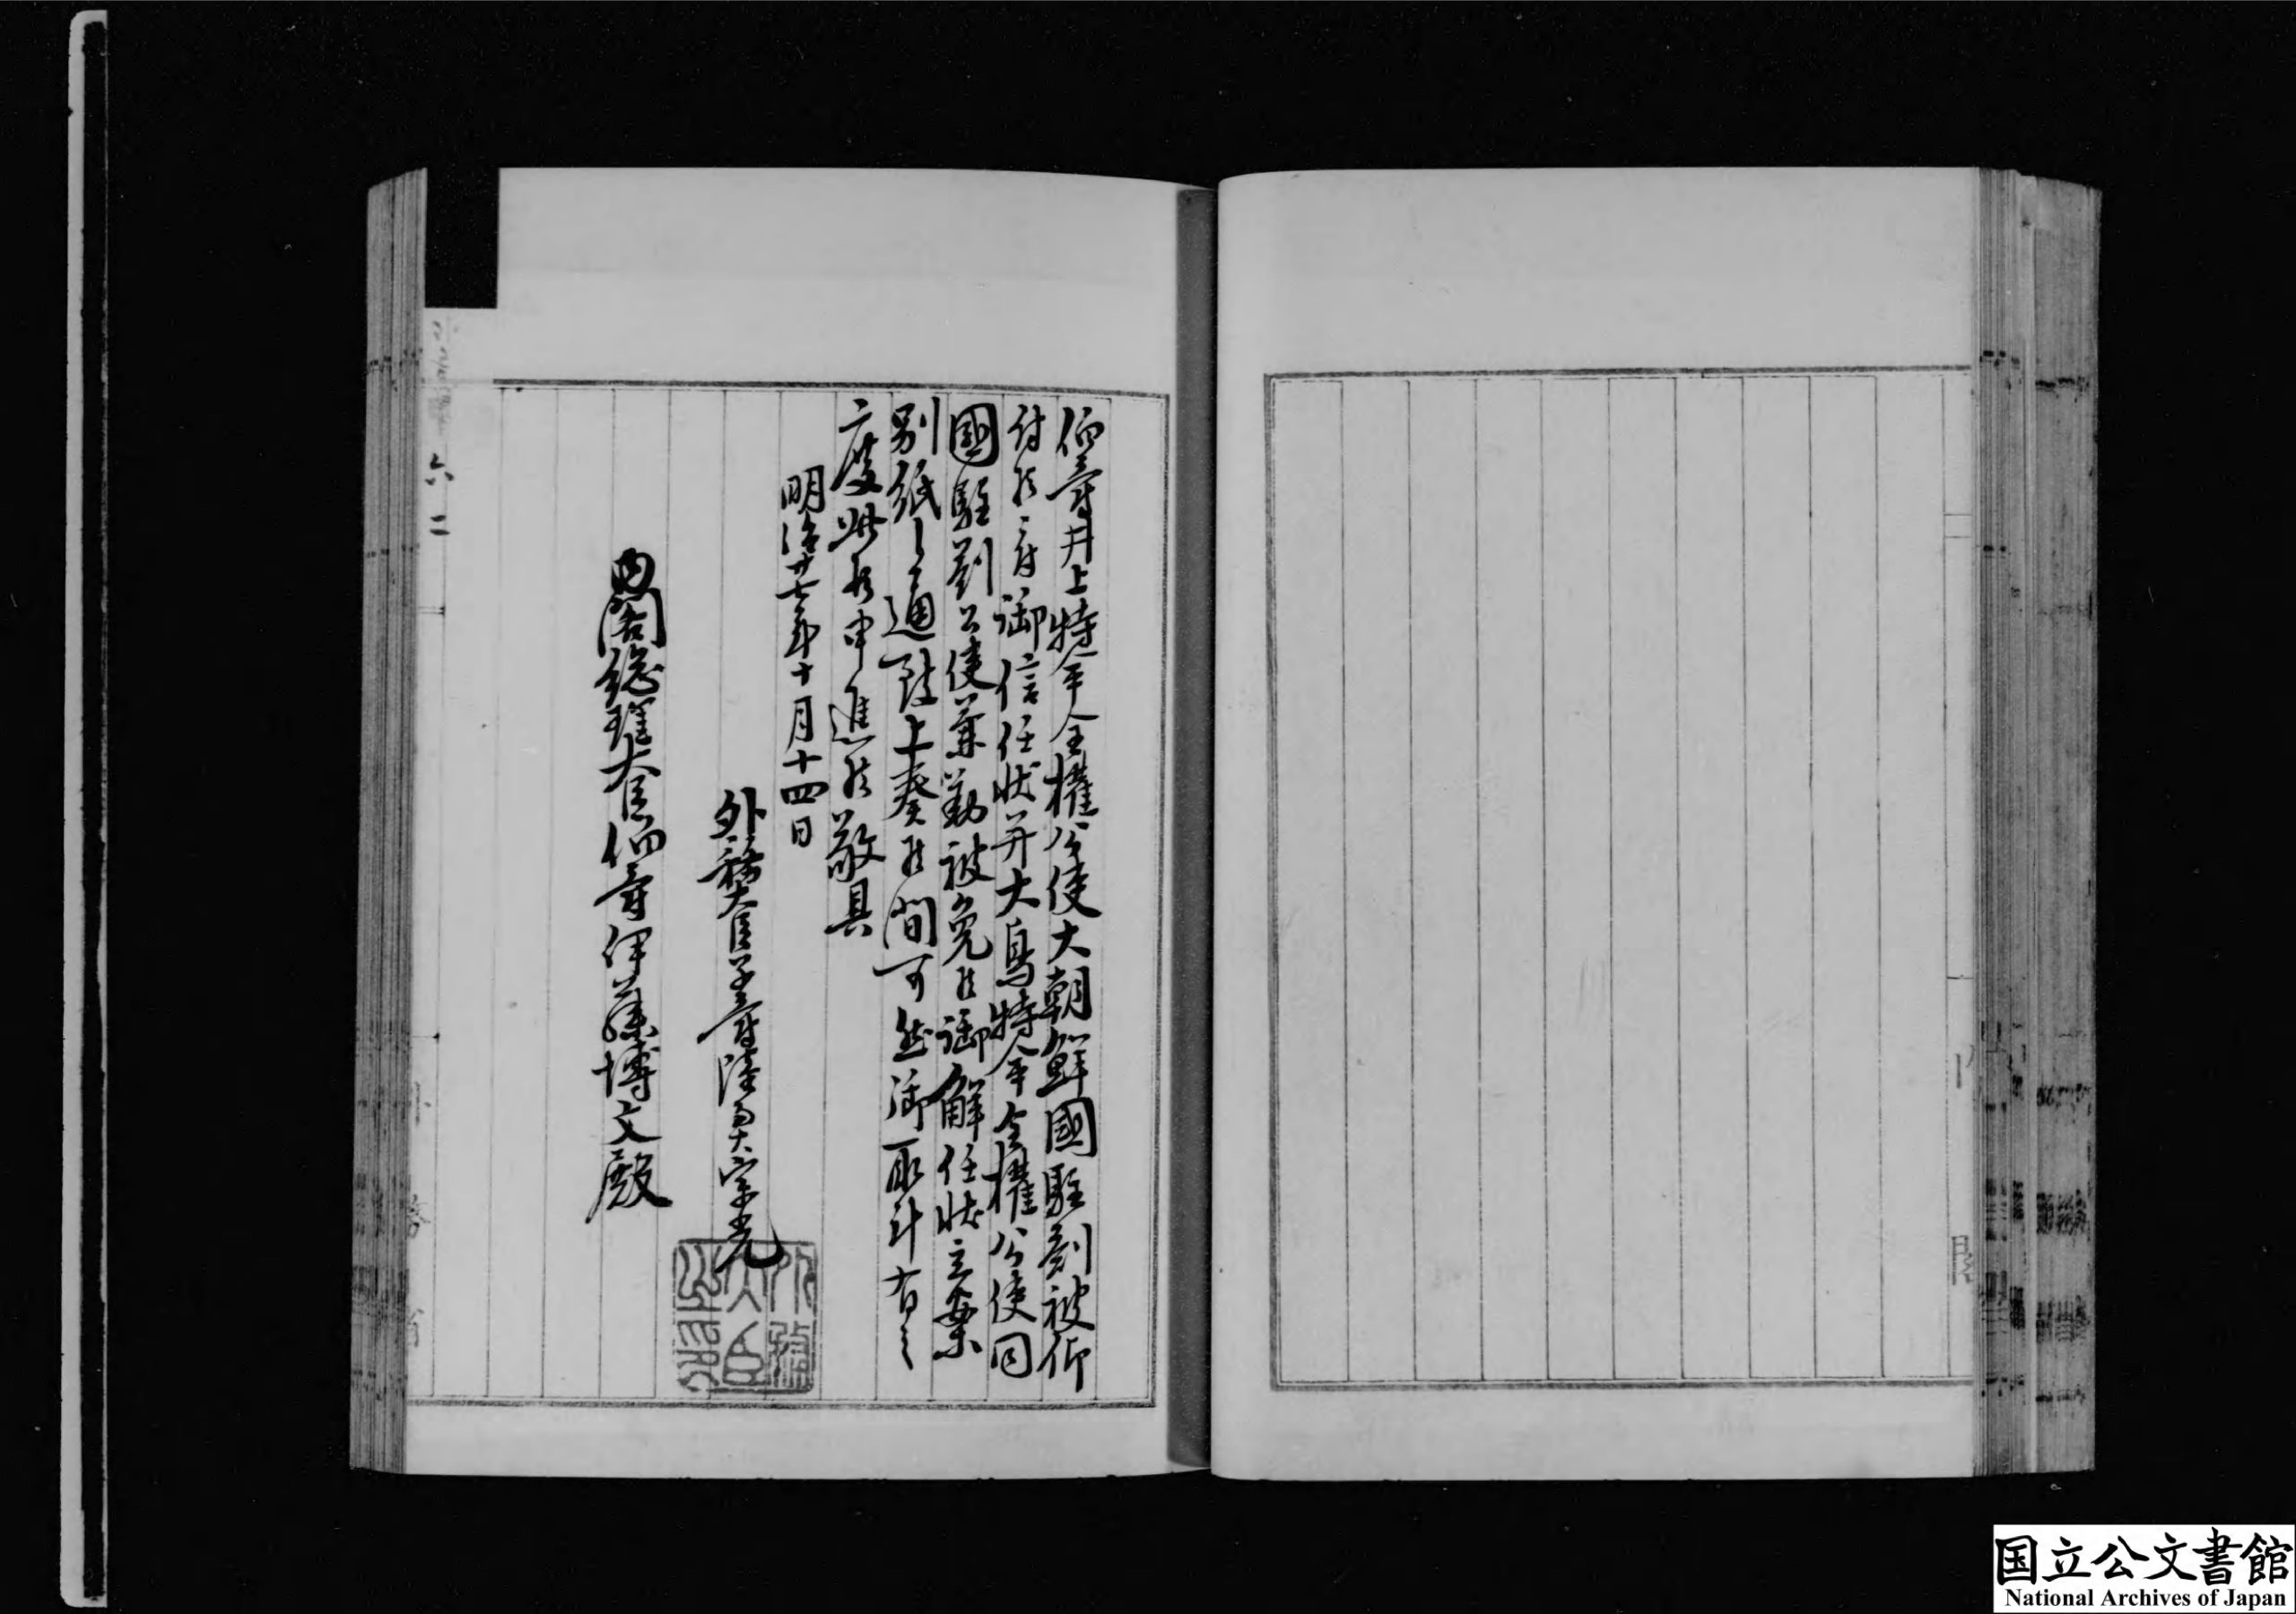 伯爵井上特命全權公使大朝鮮國駐劄被仰
付候ニ付御信任状并大鳥特命全權公使同
國駐劄公使兼勤被免候御解任状立案
別紙之通致上奏候間可然御取計有之
度此段申進候敬具
明治廿七年十月十四日
外務大臣子爵陸奥宗光
外務大臣之印
内閣總理大臣伯爵伊藤博文殿
六二
国立公文書館
National Archives of Japan